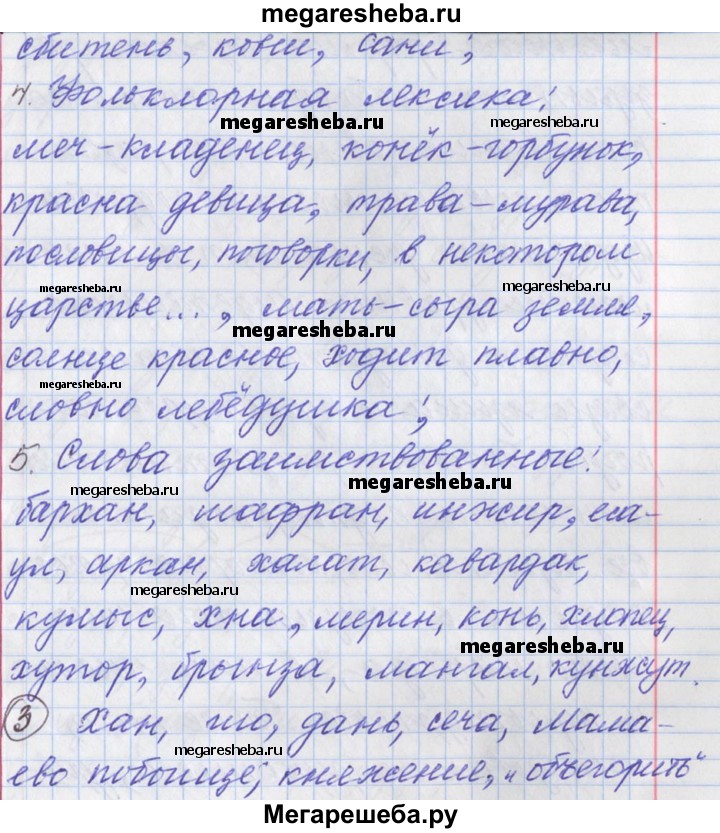 megaresheba.ru
сбитень, ковш, сани;
4. Фольклорная лексика:
megaresheba.ru megaresheba.ru
меч-кладенец, конёк-горбунок,
красна девица, трава-мурава,
пословицы, поговорки, в некотором
megaresheba.ru megaresheba.ru
царстве..., мать-сыра земля,
megaresheba.ru
солнце красное, ходит плавно,
megaresheba.ru
словно лебёдушка;
5. Слова заимствованные:
megaresheba.ru megaresheba.ru
бархан, шафран, инжир, еса-
ул, аркан, халат, кавардак,
megaresheba.ru
кумыс, хна, мерин, конь, хлопец,
megaresheba.ru
хутор, брынза, мангал, кунжут.
3 Хан, иго, дань, сеча, Мама-
megaresheba.ru
ево побоище, княжение, „объегорить“
Мегарешеба.ру